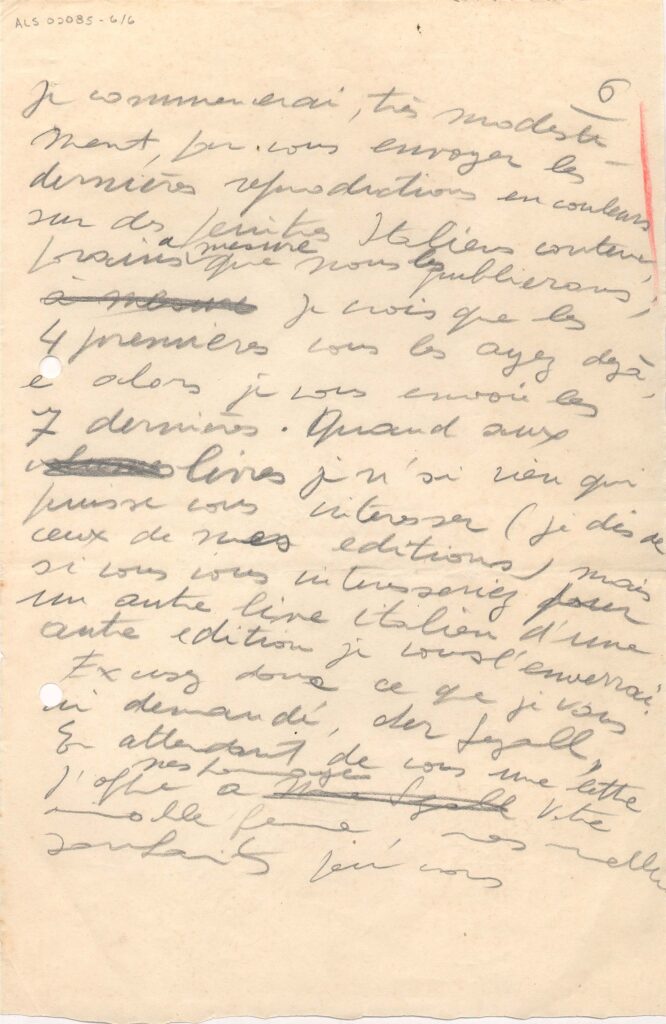 ALS 02085-6/6
6
Je commencerai, très modeste-
ment, par vous envoyer les
dernières reproductions en couleurs
sur des peintres Italiens contem-
porains à mesure que nous les publierons,
à mesure je crois que les
4 premières vous les ayez dejà,
e alors je vous envoie les
7 dernières. Quand aux
livres je n'ai rien qui
puisse vous interesser (je dis de
ceux de mes editions) mais
si vous vous interesseriez pour
un autre livre italien d'une
autre edition je vous l'enverrai.
Excusez donc ce que je vous
ai demandé, cher Segall,
En attendant de vous une lettre
j'offre a mes hommages Votre
femme, mes
souhaits vous